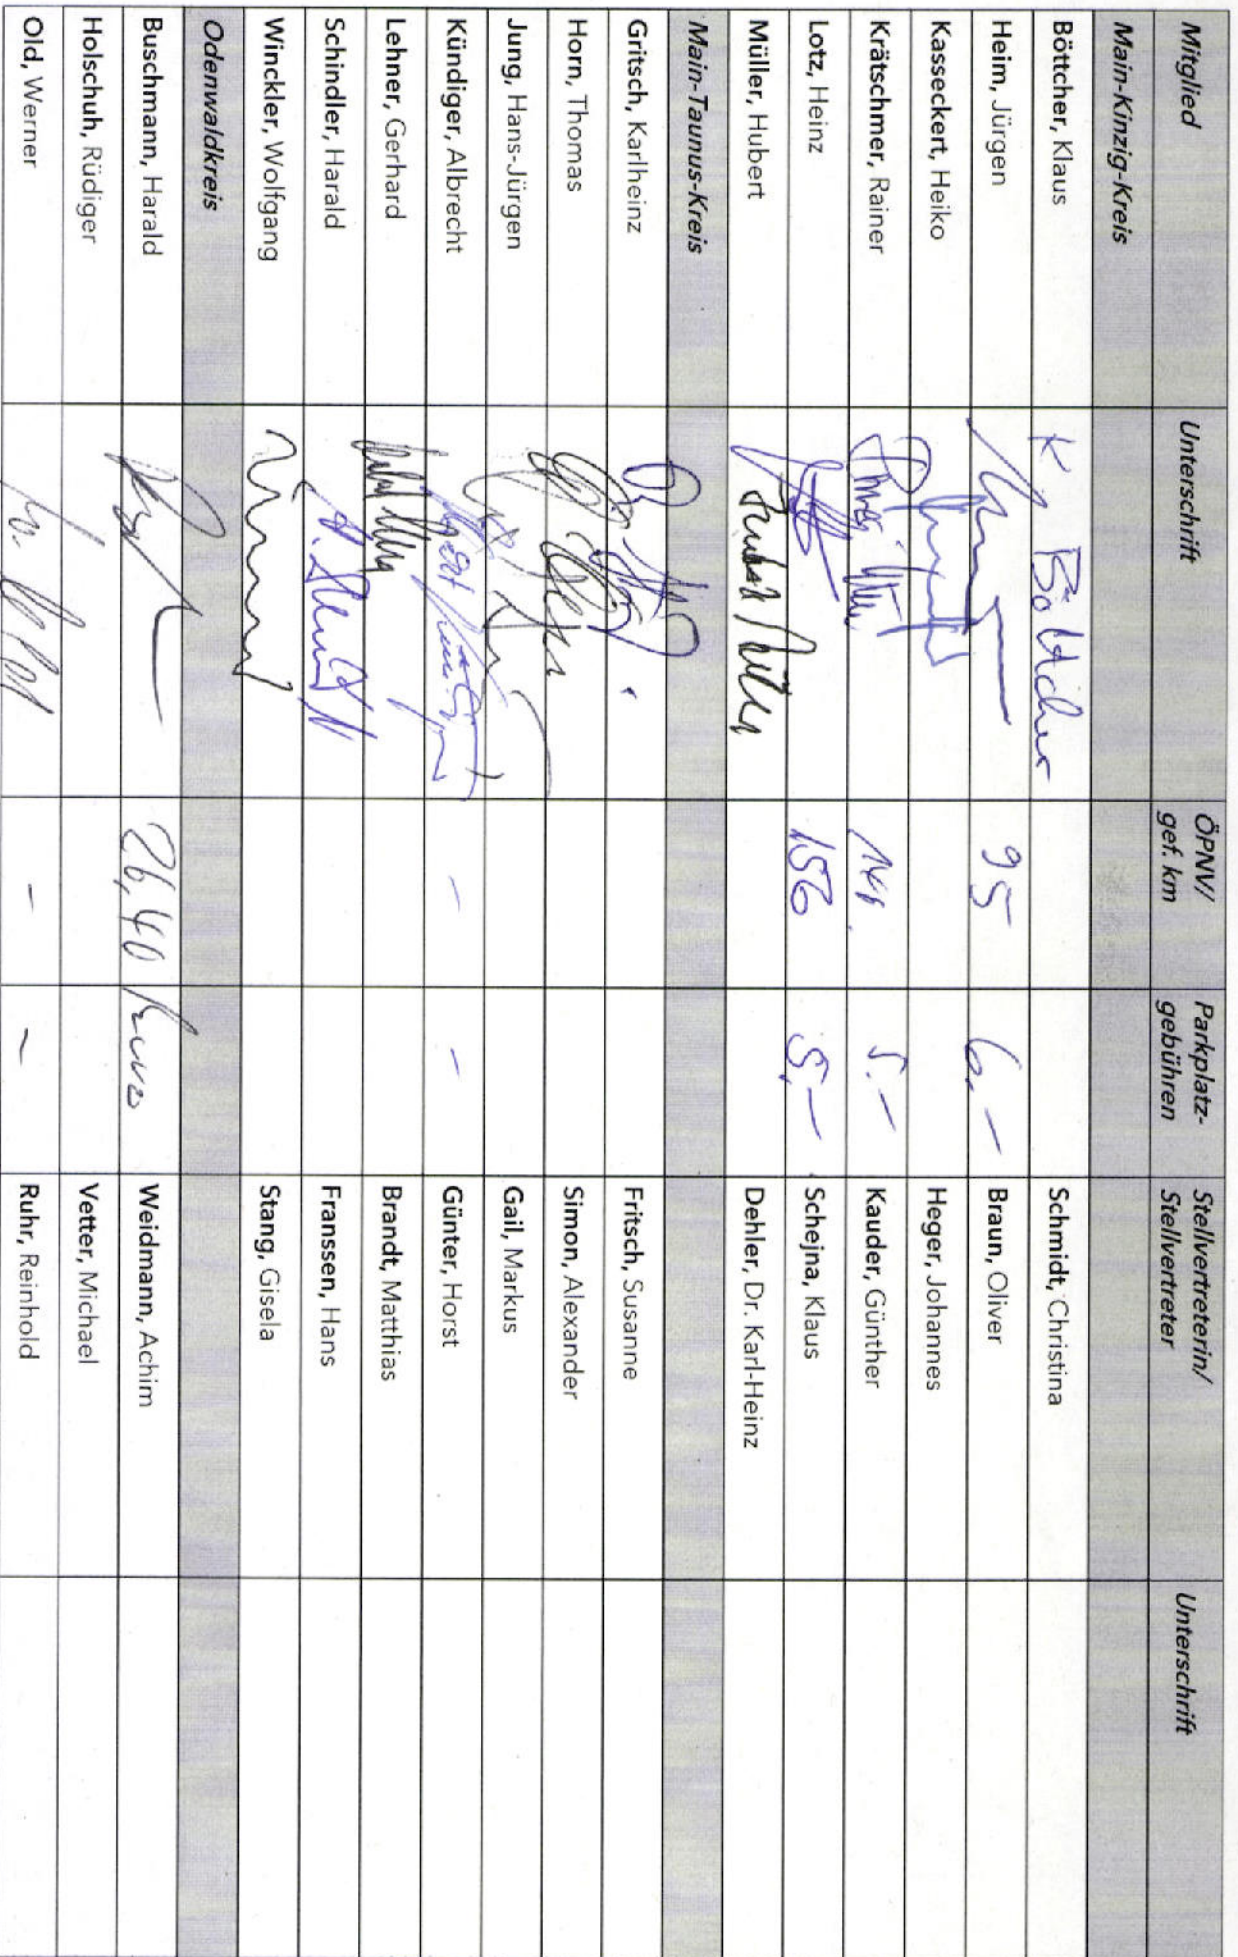 Mitglied Unterschrift ÖPNV/ gef. km Parkplatz- gebühren Stellvertreterin/ Stellvertreter Unterschrift
Main-Kinzig-Kreis
Böttcher, Klaus K Böttcher Schmidt, Christina
Heim, Jürgen 95 6,– Braun, Oliver
Kasseckert, Heiko Heger, Johannes
Krätschmer, Rainer 5.– Kauder, Günther
Lotz, Heinz 156 5,– Schejna, Klaus
Müller, Hubert Hubert Müller Dehler, Dr. Karl-Heinz
Main-Taunus-Kreis
Gritsch, Karlheinz Fritsch, Susanne
Horn, Thomas Simon, Alexander
Jung, Hans-Jürgen Gail, Markus
Kündiger, Albrecht – – Günter, Horst
Lehner, Gerhard Brandt, Matthias
Schindler, Harald Franssen, Hans
Winckler, Wolfgang Stang, Gisela
Odenwaldkreis
Buschmann, Harald 26,40 Euro Weidmann, Achim
Holschuh, Rüdiger Vetter, Michael
Old, Werner – – Ruhr, Reinhold